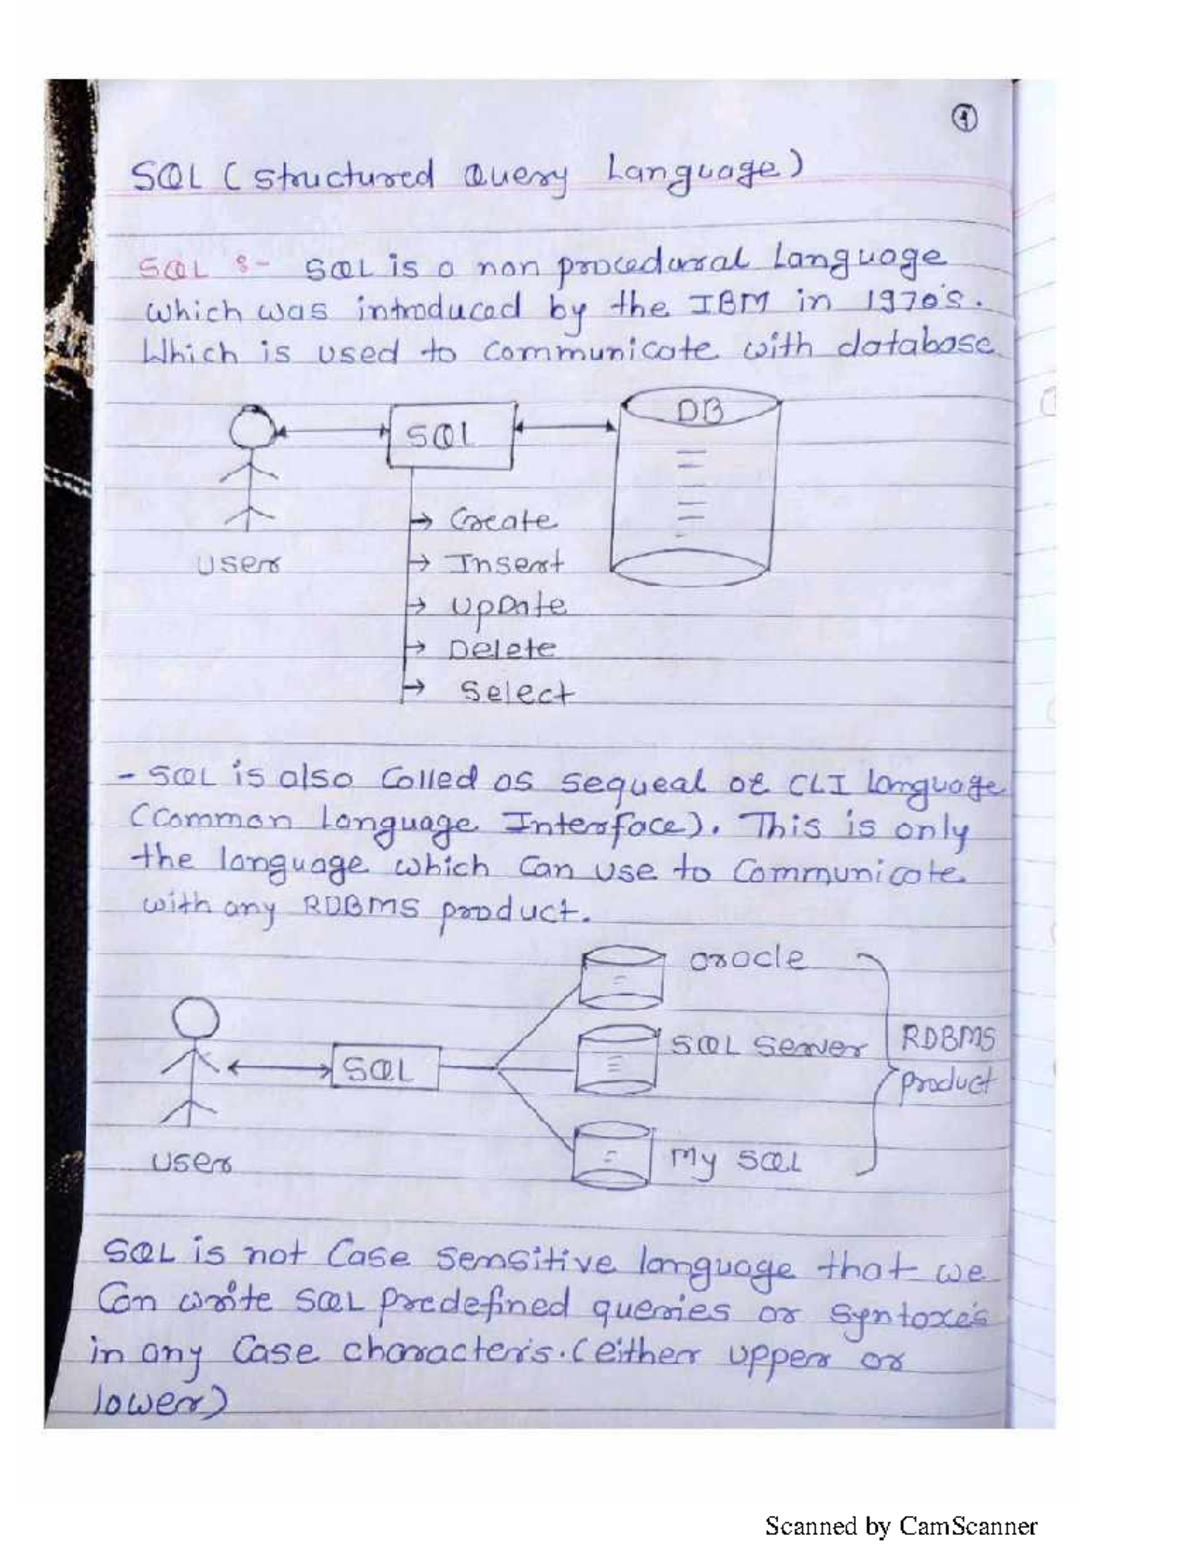 1
SQL (Structured Query Language)
SQL :- SQL is a non procedural Language
which was introduced by the IBM in 1970's.
Which is used to communicate with database
SQL
DB
User
→ Create
→ Insert
→ UpDate
→ Delete
→ Select
- SQL is also Called as sequeal or CLI language
(Common Language Interface). This is only
the language which Can use to Communicate
with any RDBMS product.
User
SQL
oracle
SQL Server
My SQL
RDBMS
product
SQL is not Case sensitive language that we
Can write SQL predefined queries or syntaxe's
in any Case characteris. (either upper or
lower)
Scanned by CamScanner